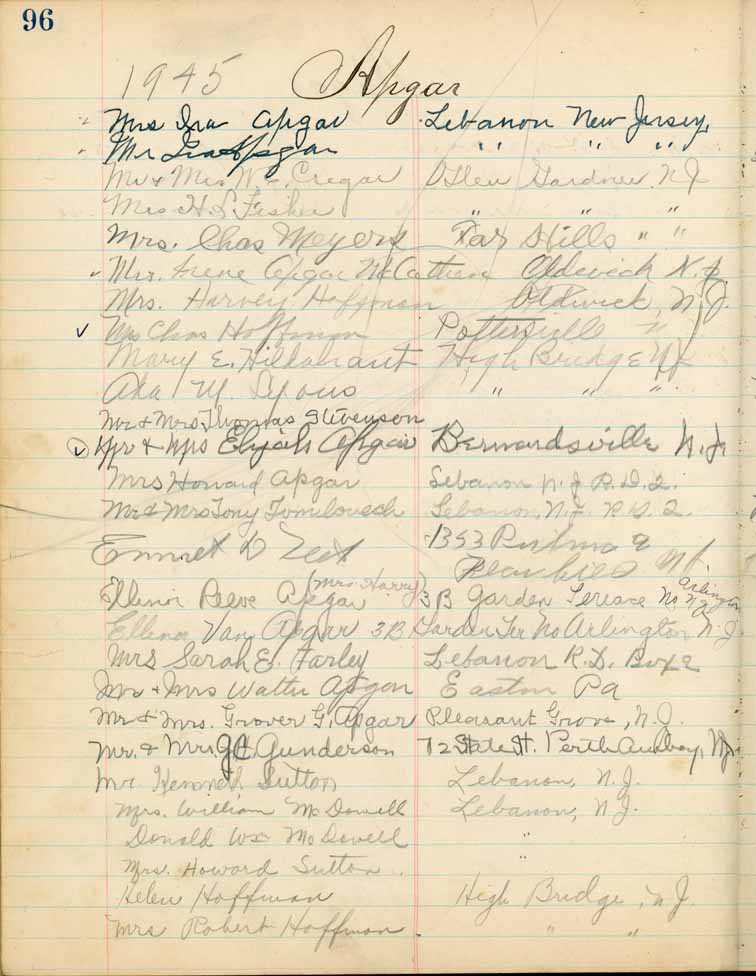 96
1945 Apgar
Mrs Ira Apgar Lebanon New Jersey,
Mr Ira Apgar " " "
Mr & Mrs W. Cregar Glen Gardner N J
Mrs H. L. Fisher " " "
Mrs. Chas Meyers Far Hills " "
Mrs. Irene Apgar Oldwick N. J.
Mrs. Harvey Hoffman Oldwick, N. J.
✓ Mrs Chas Hoffman Pottersville "
Mary E. High Bridge N J
Ada M. Lyons " " "
Mr & Mrs Thomas Stevenson
✓ Mr & Mrs Elijah Apgar Bernardsville N. J.
Mrs Howard Apgar Lebanon N. J. R. D. 2.
Mr & Mrs Tony Lebanon, N. J. R. D. 2.
Emmet D 1353
N J.
Ellenor Reeve Apgar (Mrs. Harry) 3B Garden Terrace No. Arlington N. J.
Ellenor Van Apgar 3B Garden Ter No Arlington, N. J.
Mrs Sarah E. Farley Lebanon R. D. Box 2
Mr & Mrs Walter Apgar Easton Pa
Mr & Mrs. Grover G. Apgar Pleasant Grove, N. J.
Mr. & Mrs J C Gunderson 72 State St. Perth Amboy, N J
Mr Kenneth Sutton Lebanon, N. J.
Mrs. William McDowell Lebanon, N. J.
Donald Wm McDowell "
Mrs. Howard Sutton
Helen Hoffman High Bridge, N. J.
Mrs Robert Hoffman " "